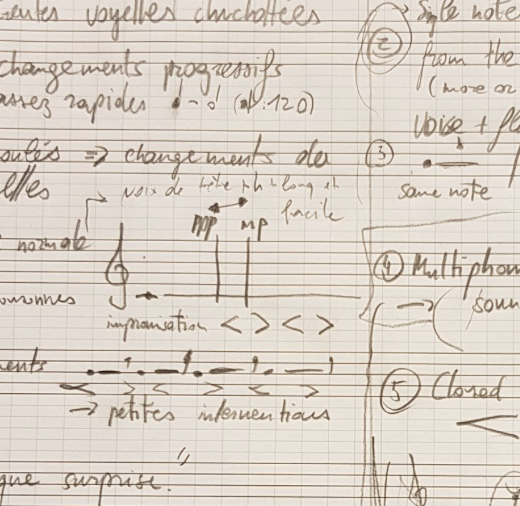 voyelles chuchottées
changements progressifs
assez rapides (♩:120)
=> changements de
voix de tête long et
facile
normale
mp
improvisation < > < >
< > < > < >
-> petites interventions
que surprise."
② Single note
from the
(more or
③ voise + fl
same note
④ Multiphon
-> ( soun
⑤ Closed
<